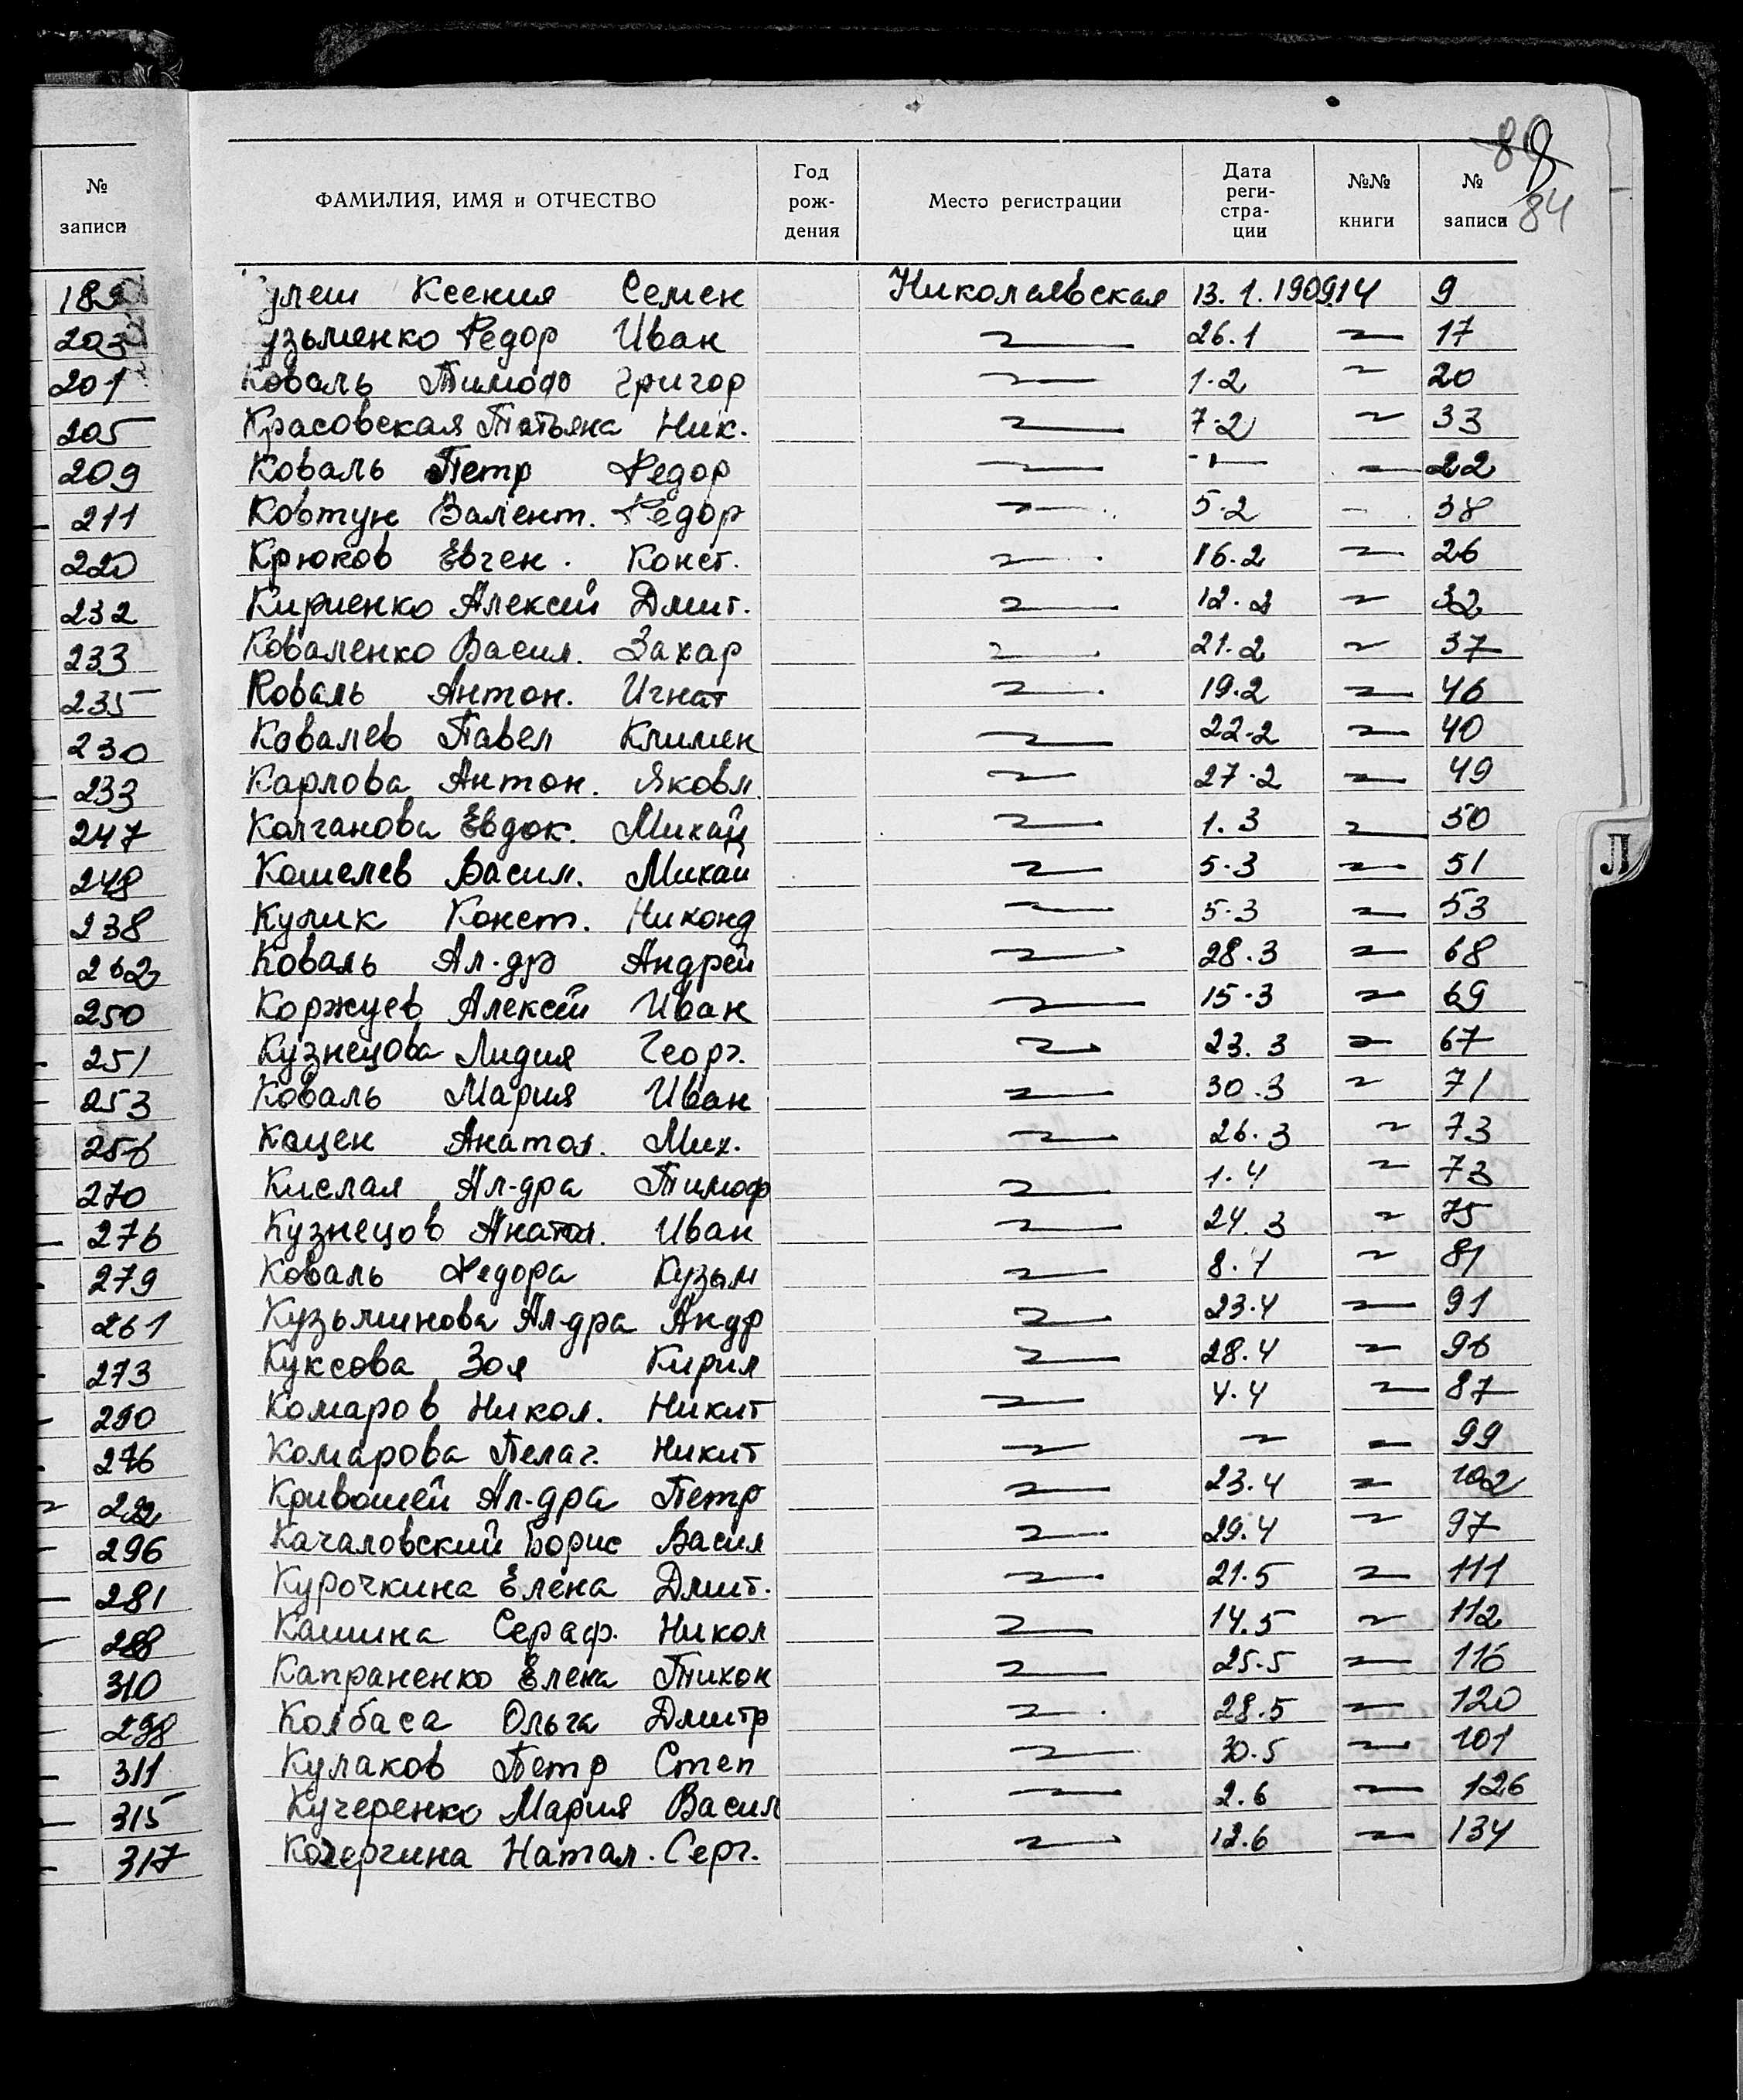 80
84
№ записи
ФАМИЛИЯ, ИМЯ и ОТЧЕСТВО Год рож- дения Место регистрации Дата реги- стра- ции №№ книги № записи
189 улеш Ксения Семен Николаевская 13.1.1909 14 9
203 узьменко Федор Иван 26.1 17
201 Коваль Тимоф Григор 1.2 20
205 Красовская Татьяна Ник. 7.2 33
209 Коваль Петр Федор -"- 22
211 Ковтун Валент. Федор 5.2 38
220 Крюков Евген. Конст. 16.2 26
232 Кириенко Алексей Дмит. 12.2 32
233 Коваленко Васил. Захар 21.2 37
235 Коваль Антон. Игнат 19.2 46
230 Ковалев Павел Климен 22.2 40
233 Карлова Антон. Яковл. 27.2 49
247 Колганова Евдок. Михай 1.3 50
248 Кошелев Васил. Михаи 5.3 51
238 Кулик Конст. Никонд 5.3 53
262 Коваль Ал-др Андрей 28.3 68
250 Коржуев Алексей Иван 15.3 69
251 Кузнецова Лидия Георг. 23.3 67
253 Коваль Мария Иван 30.3 71
256 Кацен Анатол. Мих. 26.3 73
270 Кислая Ал-дра Тимоф 1.4 73
276 Кузнецов Анатол. Иван 24.3 75
279 Коваль Федора Кузьм 8.4 81
261 Кузьминова Ал-дра Андр 23.4 91
273 Куксова Зоя Кирил 28.4 96
290 Комаров Никол. Никит 4.4 87
276 Комарова Пелаг. Никит 99
292 Кривошей Ал-дра Петр 23.4 102
296 Качаловский Борис Васил 29.4 97
281 Курочкина Елена Дмит. 21.5 111
288 Кашина Сераф. Никол 14.5 112
310 Капраненко Елена Тихон 25.5 116
298 Колбаса Ольга Дмитр 28.5 120
311 Кулаков Петр Степ 30.5 101
315 Кучеренко Мария Васил 2.6 126
317 Кочергина Натал. Серг. 12.6 134
Л